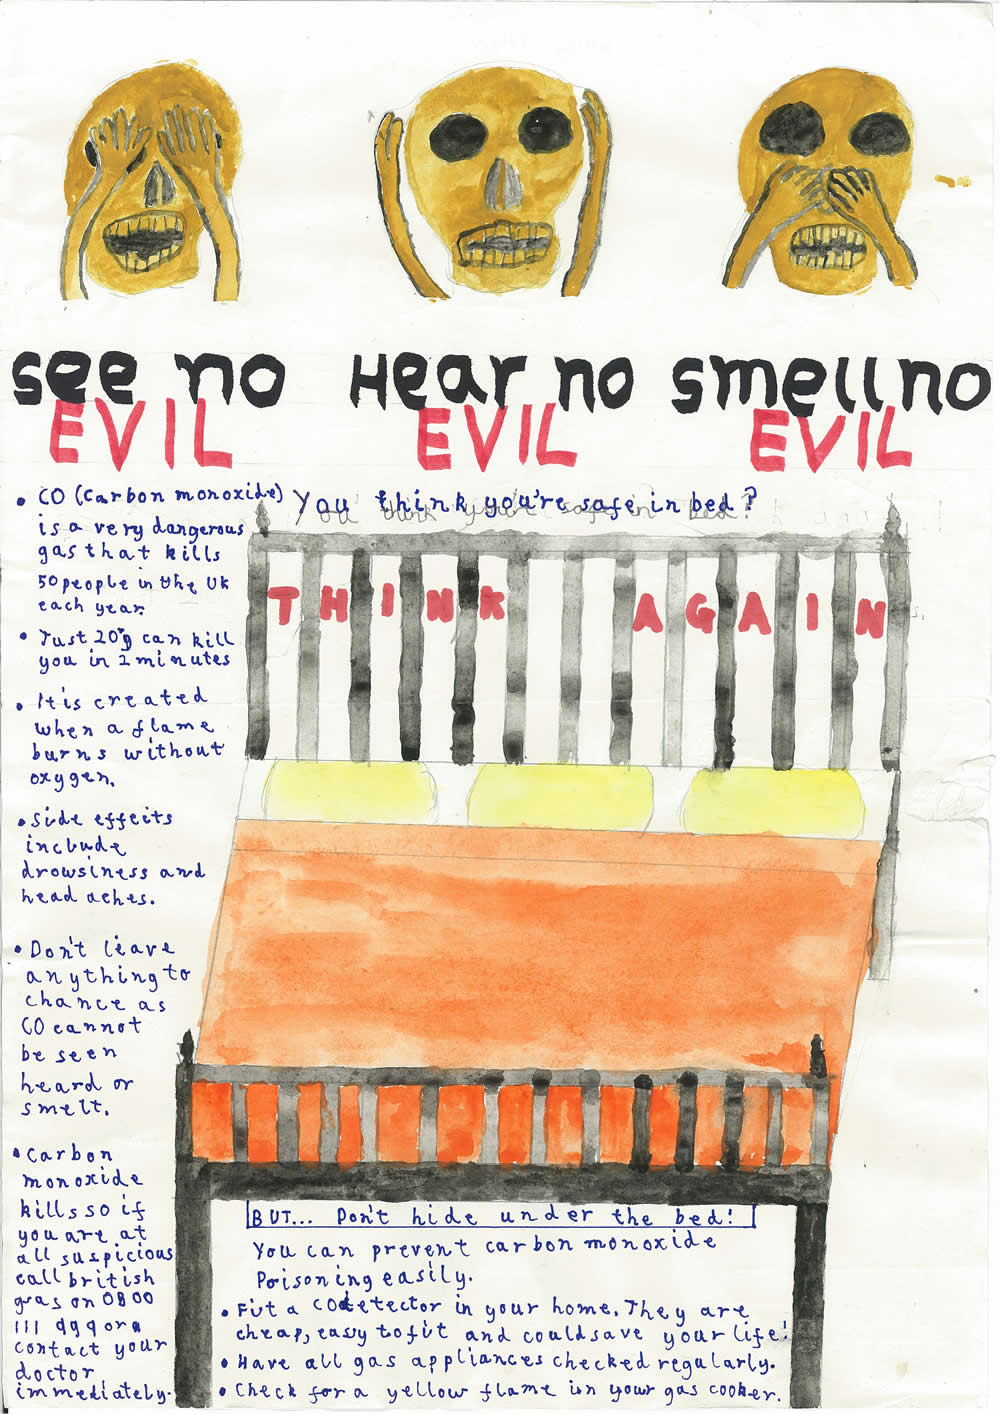 See no Hear no Smell no
EVIL EVIL EVIL
• CO (Carbon monoxide)
is a very dangerous
gas that kills
50 people in the UK
each year.
• Just 20g can kill
you in 2 minutes
• It is created
when a flame
burns without
oxygen.
• Side effects
include
drowsiness and
head aches.
• Don't leave
anything to
chance as
CO cannot
be seen
heard or
smelt.
• Carbon
monoxide
kills so if
you are at
all suspicious
call british
gas on 0800
111 999 or a
contact your
doctor
immediately.
You think you're safe in bed?
THINK AGAIN
BUT... Don't hide under the bed!
You can prevent carbon monoxide
Poisoning easily.
• Fit a CO detector in your home. They are
cheap, easy to fit and could save your life!
• Have all gas appliances checked regularly.
• Check for a yellow flame in your gas cooker.